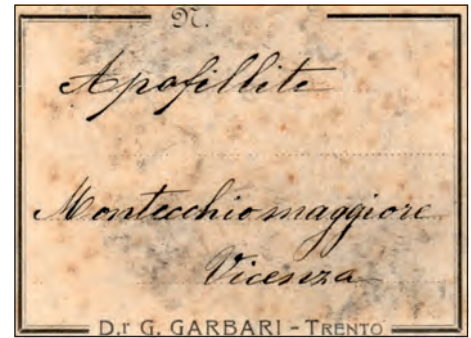 N.
Apofillite
Montecchiomaggiore
Vicenza
D.r G. GARBARI - TRENTO